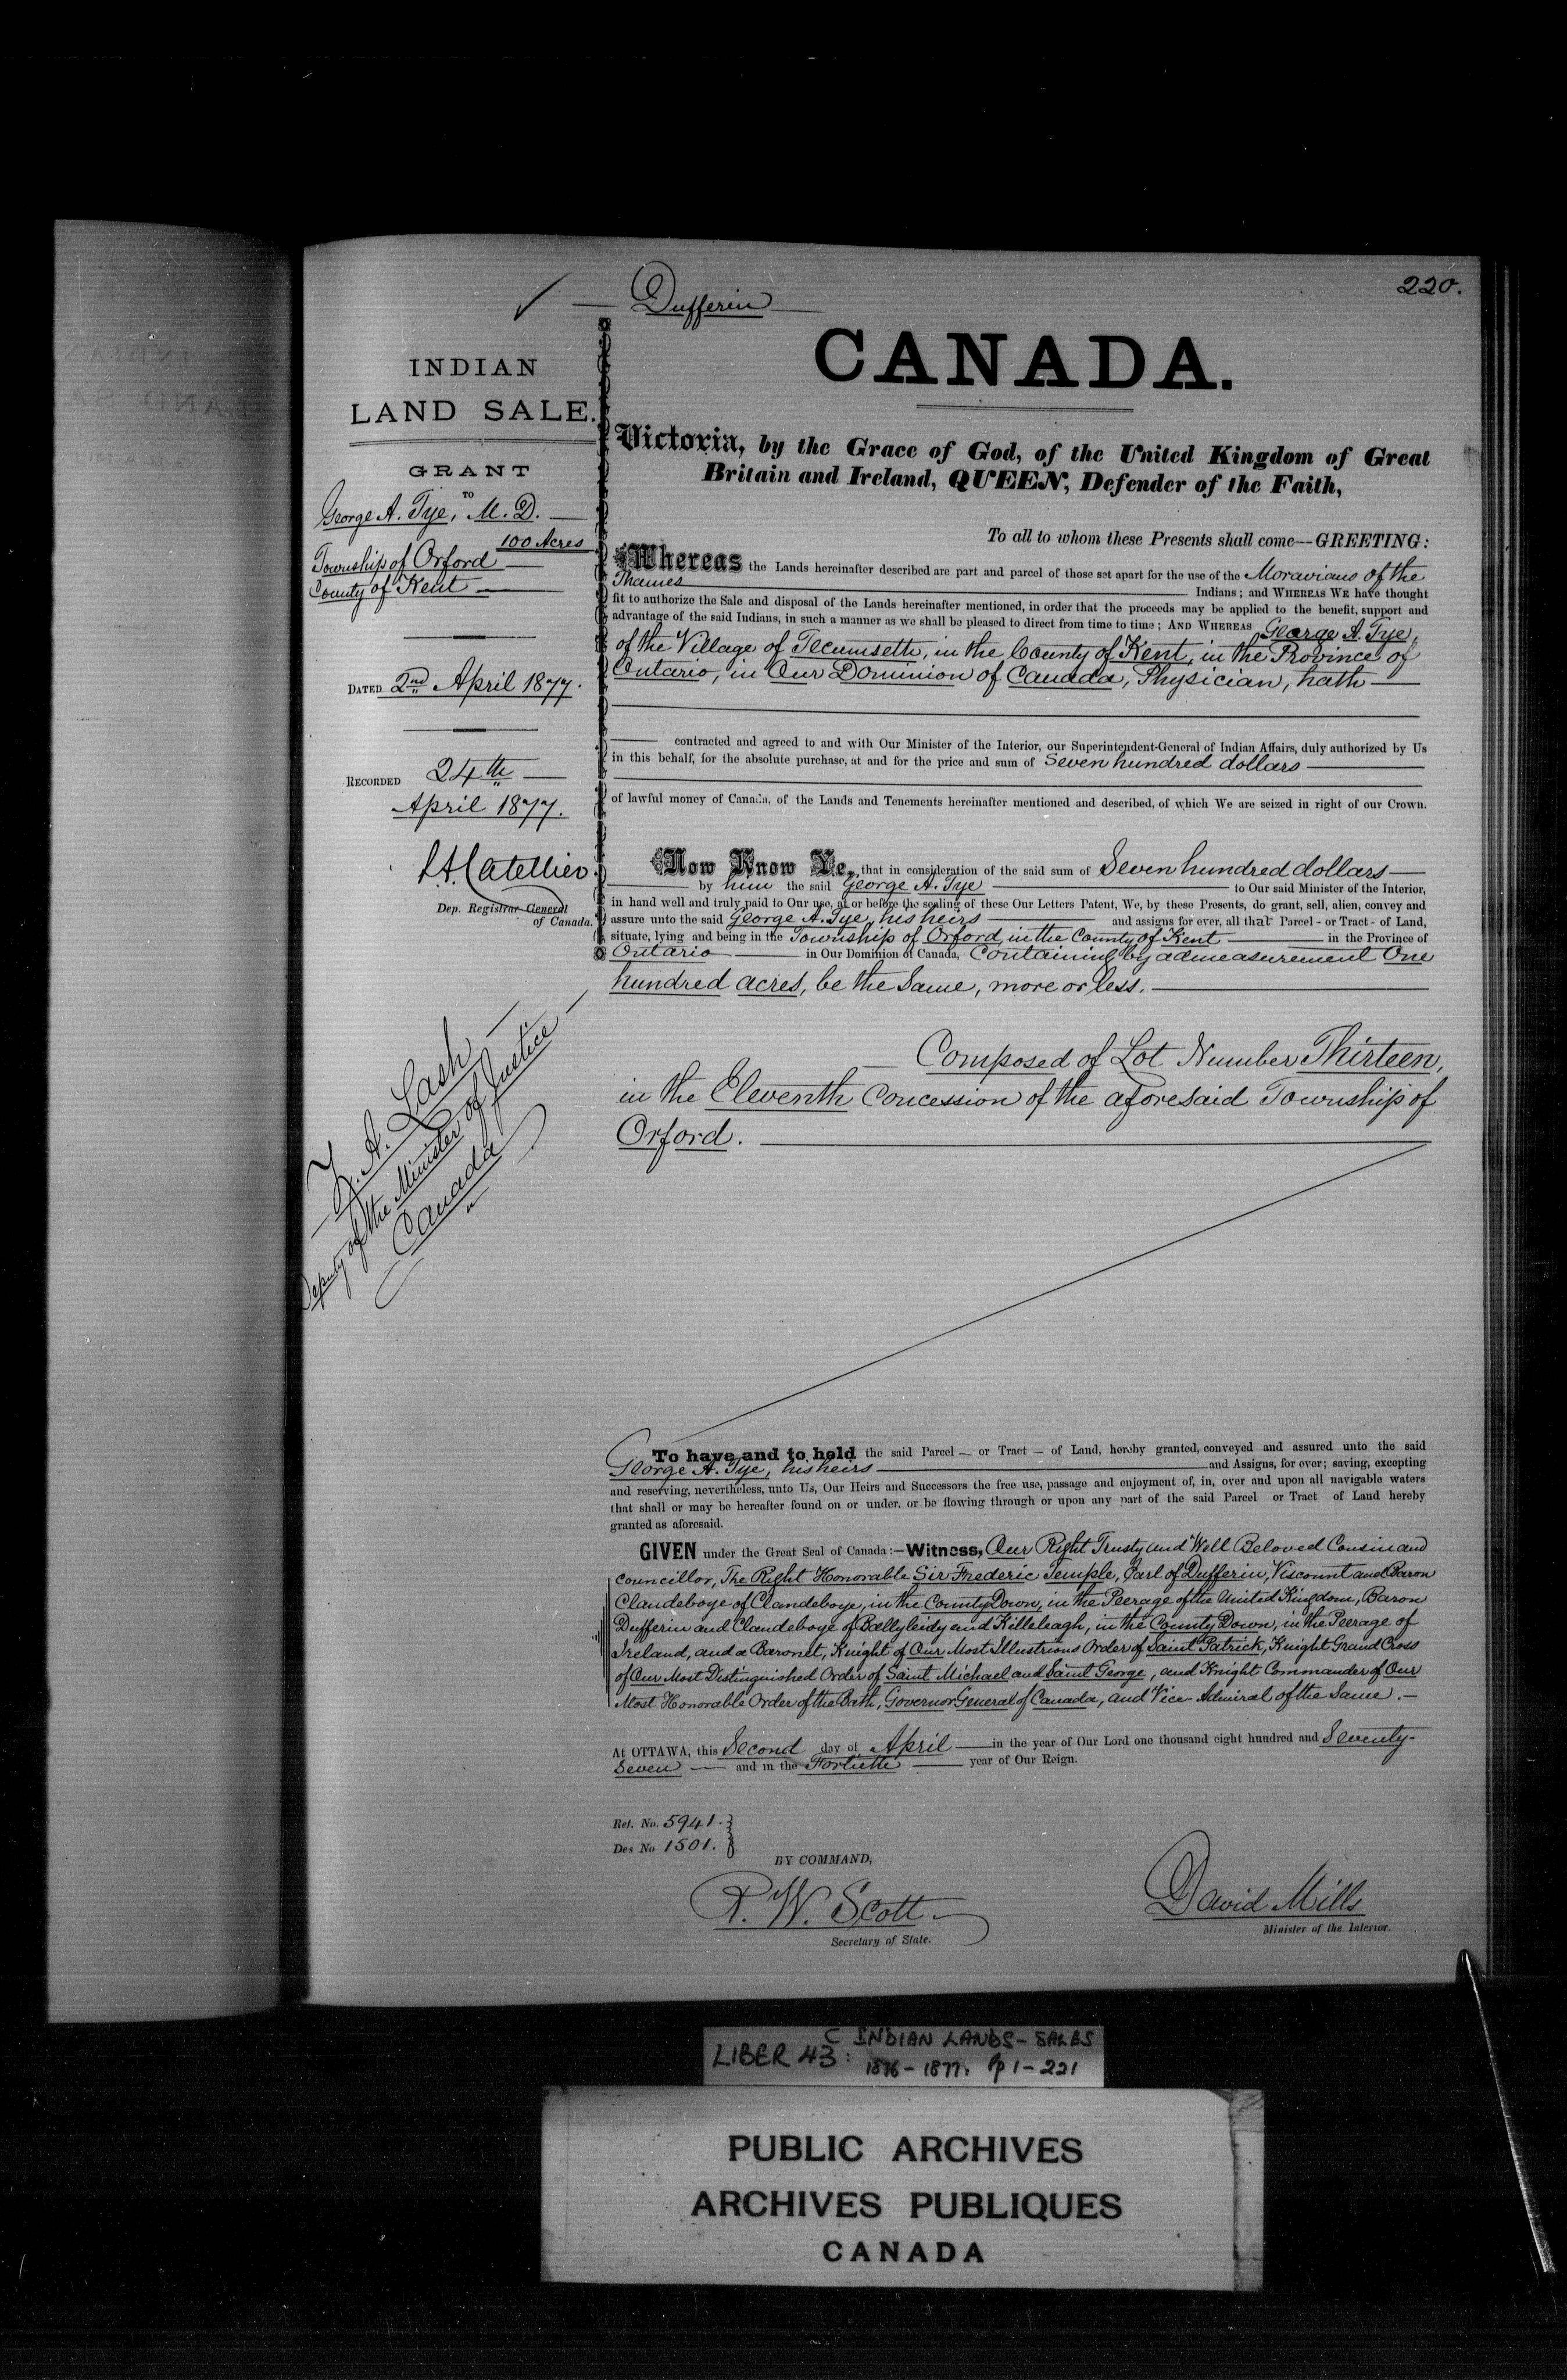 220.
Dufferin
CANADA.
INDIAN
LAND SALE.
GRANT
TO
George A. Tye, M. D.
100 Acres
Township of Orford
County of Kent
DATED 2nd April 1877.
RECORDED 24th
April 1877.
L. A. Catellier
Dep. Registrar General
of Canada.
Z. A. Lash
Deputy of the Minister of Justice
Canada
Victoria, by the Grace of God, of the United Kingdom of Great
Britain and Ireland, QUEEN, Defender of the Faith,
To all to whom these Presents shall come—GREETING:
Whereas the Lands hereinafter described are part and parcel of those set apart for the use of the Moravians of the
Thames Indians; and WHEREAS WE have thought
fit to authorize the Sale and disposal of the Lands hereinafter mentioned, in order that the proceeds may be applied to the benefit, support and
advantage of the said Indians, in such a manner as we shall be pleased to direct from time to time; AND WHEREAS George A. Tye,
of the Village of Tecumseth, in the County of Kent, in the Province of
Ontario, in Our Dominion of Canada, Physician, hath
contracted and agreed to and with Our Minister of the Interior, our Superintendent-General of Indian Affairs, duly authorized by Us
in this behalf, for the absolute purchase, at and for the price and sum of Seven hundred dollars
of lawful money of Canada, of the Lands and Tenements hereinafter mentioned and described, of which We are seized in right of our Crown.
Now Know Ye, that in consideration of the said sum of Seven hundred dollars
by him the said George A. Tye to Our said Minister of the Interior,
in hand well and truly paid to Our use, at or before the sealing of these Our Letters Patent, We, by these Presents, do grant, sell, alien, convey and
assure unto the said George A. Tye, his heirs and assigns for ever, all that Parcel - or Tract - of Land,
situate, lying and being in the Township of Orford, in the County of Kent in the Province of
Ontario in Our Dominion of Canada, Containing by admeasurement One
hundred acres, be the Same, more or less.
Composed of Lot Number Thirteen,
in the Eleventh Concession of the aforesaid Township of
Orford.
To have and to hold the said Parcel — or Tract — of Land, hereby granted, conveyed and assured unto the said
George A. Tye, his heirs and Assigns, for ever; saving, excepting
and reserving, nevertheless, unto Us, Our Heirs and Successors the free use, passage and enjoyment of, in, over and upon all navigable waters
that shall or may be hereafter found on or under, or be flowing through or upon any part of the said Parcel or Tract of Land hereby
granted as aforesaid.
GIVEN under the Great Seal of Canada:—Witness, Our Right Trusty and Well Beloved Cousin and
Councillor, The Right Honorable Sir Frederic Temple, Earl of Dufferin, Viscount and Baron
Clandeboye of Clandeboye, in the County Down, in the Peerage of the United Kingdom, Baron
Dufferin and Clandeboye of Ballyleidy and Killeleagh, in the County Down, in the Peerage of
Ireland, and a Baronet, Knight of Our Most Illustrious Order of Saint Patrick, Knight Grand Cross
of Our Most Distinguished Order of Saint Michael and Saint George, and Knight Commander of Our
Most Honorable Order of the Bath, Governor General of Canada, and Vice-Admiral of the Same.—
At OTTAWA, this Second day of April in the year of Our Lord one thousand eight hundred and Seventy-
Seven and in the Fortieth year of Our Reign.
Ref. No. 5941.
Des No 1501.
BY COMMAND,
R. W. Scott
Secretary of State.
David Mills
Minister of the Interior.
LIBER 43C: INDIAN LANDS - SALES
1876 - 1877. Pp 1 - 221
PUBLIC ARCHIVES
ARCHIVES PUBLIQUES
CANADA